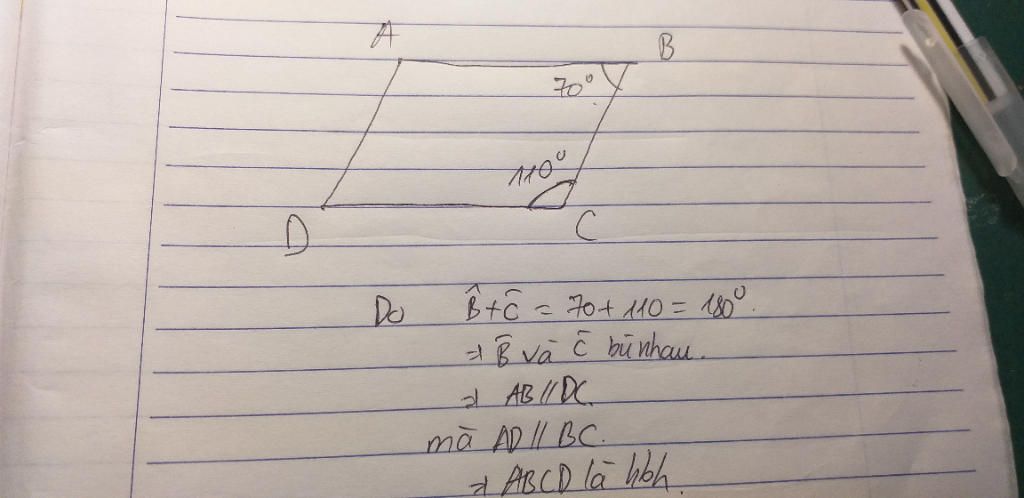 A
B
70°
110°
D
C
Do B̂ + Ĉ = 70 + 110 = 180°.
⇒ B̂ và Ĉ bù nhau.
⇒ AB // DC.
mà AD // BC.
⇒ ABCD là hbh.